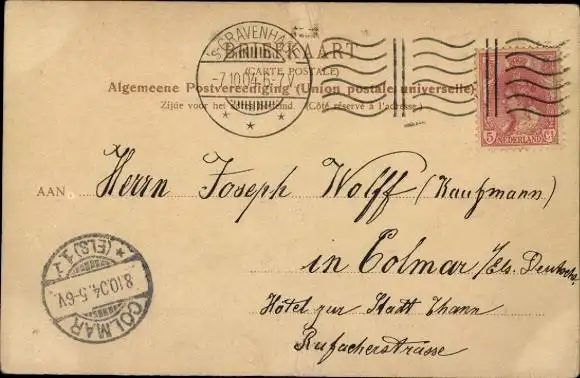 'S GRAVENHAGE
7.10.04.6-7V
BRIEFKAART
(CARTE POSTALE)
Algemeene Postvereeniging (Union postale universelle)
Zijde voor het adres bestemd. (Côté réservé à l'adresse.)
5 NEDERLAND Ct
AAN Herrn Joseph Wolff (Kaufmann)
in Colmar i/Els. Deutschl.
Hôtel zur Stadt Thann
Rufacherstrasse
* (ELS) 1. *
8.10.04.5-6V.
COLMAR